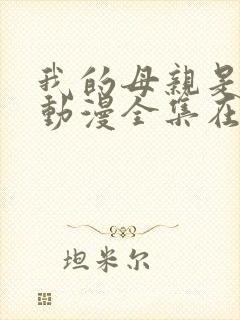 我的母親是
動漫全集在
坦米尔